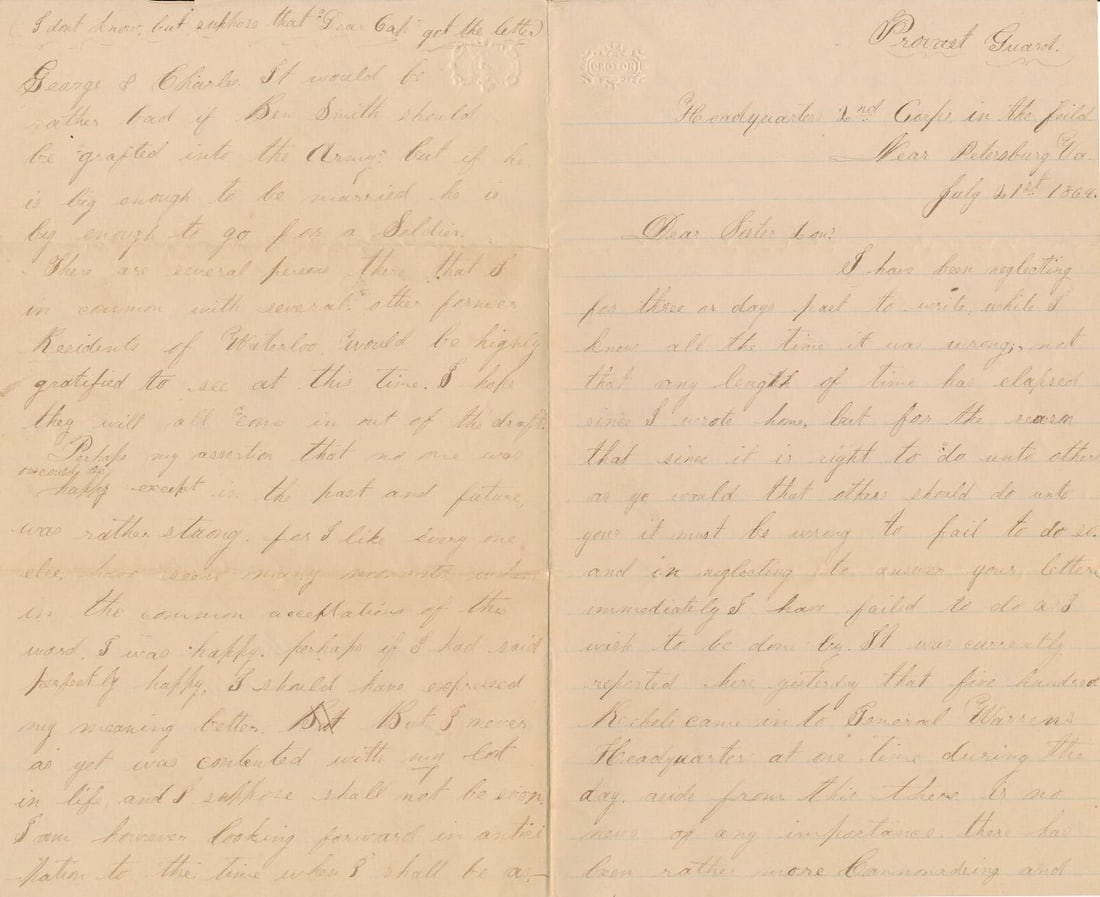 Provost Guard.
Headquarters 2nd Corps, in the feild
Near Petersburg Va.
July 21st 1864.
Dear Sister Lou:
I have been neglecting
for three or days past to write, while I
knew all the time it was wrong, not
that any length of time has elapsed
since I wrote home, but for the reason
that since it is right to "do unto others
as ye would that others should do unto
you" it must be wrong to fail to do so.
and in neglecting to answer your letters
immediately I have failed to do as I
wish to be done by. It was currently
reported here yesterday that five hundred
Rebels came in to General Warrens
Headquarters at one time during the
day. aside from this there is no
news of any importance. there has
been rather more Cannonading and
(I dont know, but suppose that "Dear Cap" got the letter)
George & Charles. It would be
rather bad if Ben Smith should
be "grafted into the Army" but if he
is big enough to be married he is
big enough to go for a Soldier.
There are several persons there that I
in common with several other former
Residents of Waterloo would be highly
gratified to see at this time. I hope
they will all come in out of the draft.
Perhaps my assertion that no one was
happy except in the past and future,
was rather strong. for I like every one
else, have seen many moments when
in the common acceptations of the
word, I was happy. perhaps if I had said
perfectly happy, I should have expressed
my meaning better. But But I never
as yet was contented with my lot
in life, and I suppose shall not be soon.
I am however looking forward in antici
pation to the time when I shall be as-